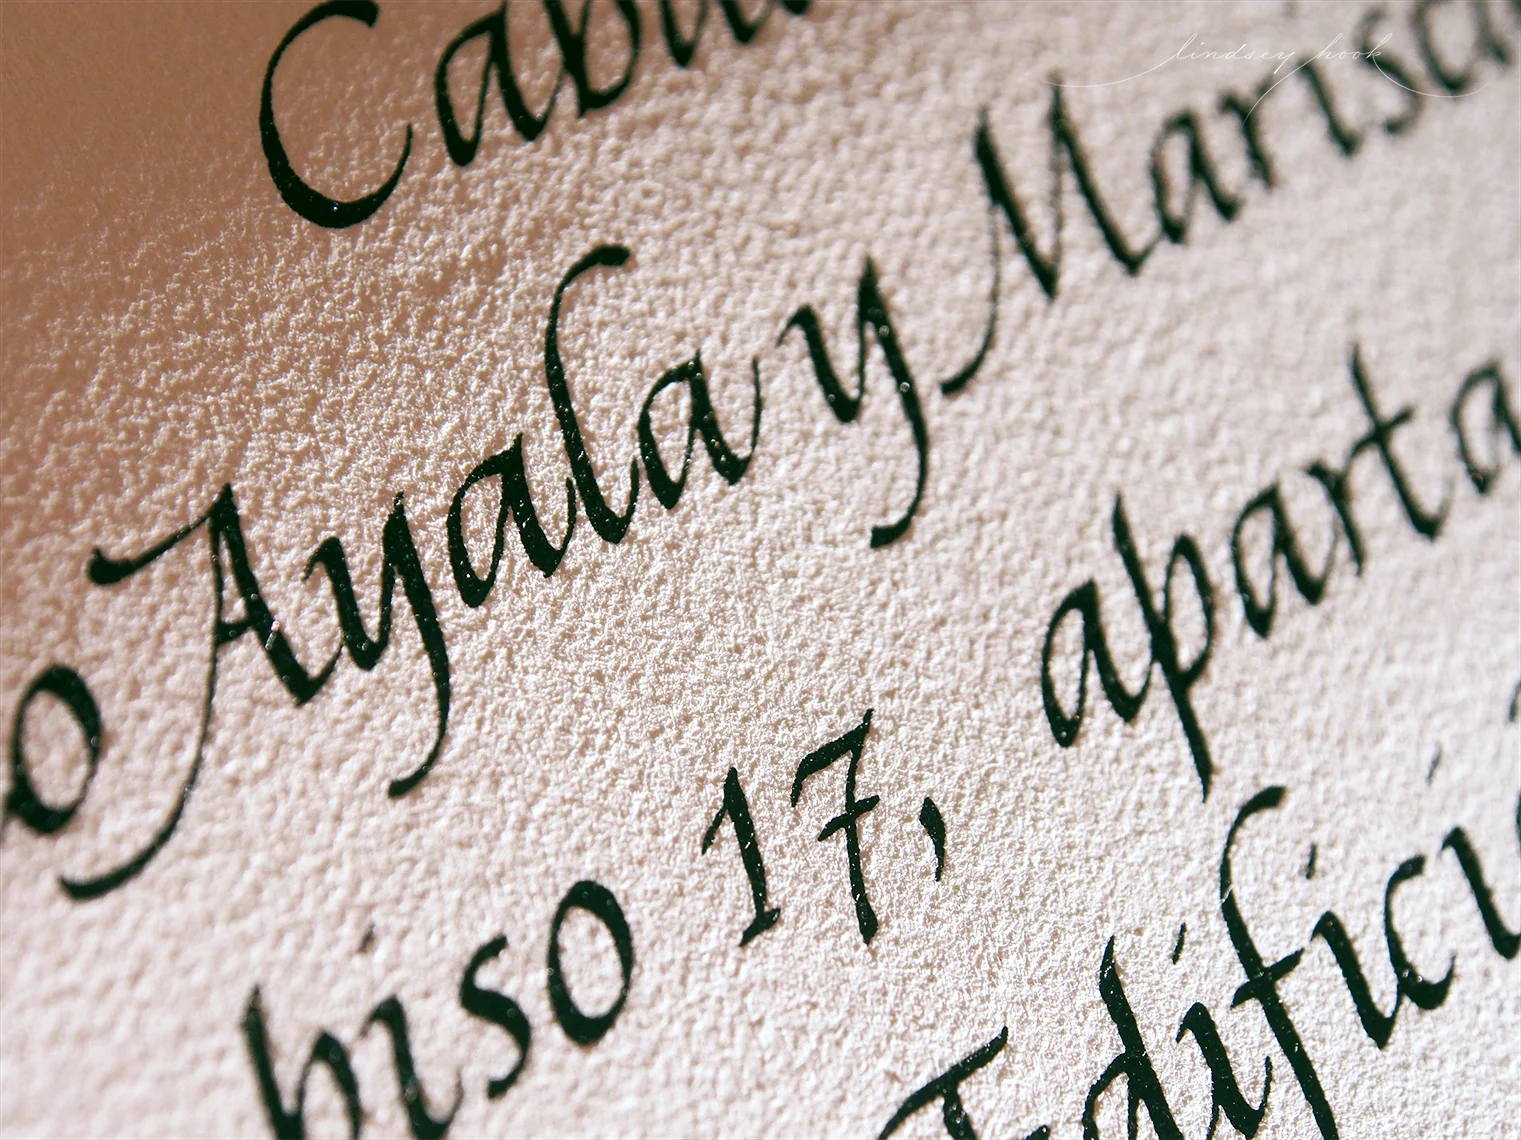 lindsey hook
o Ayala y Marisc
piso 17, aparta
Edifici